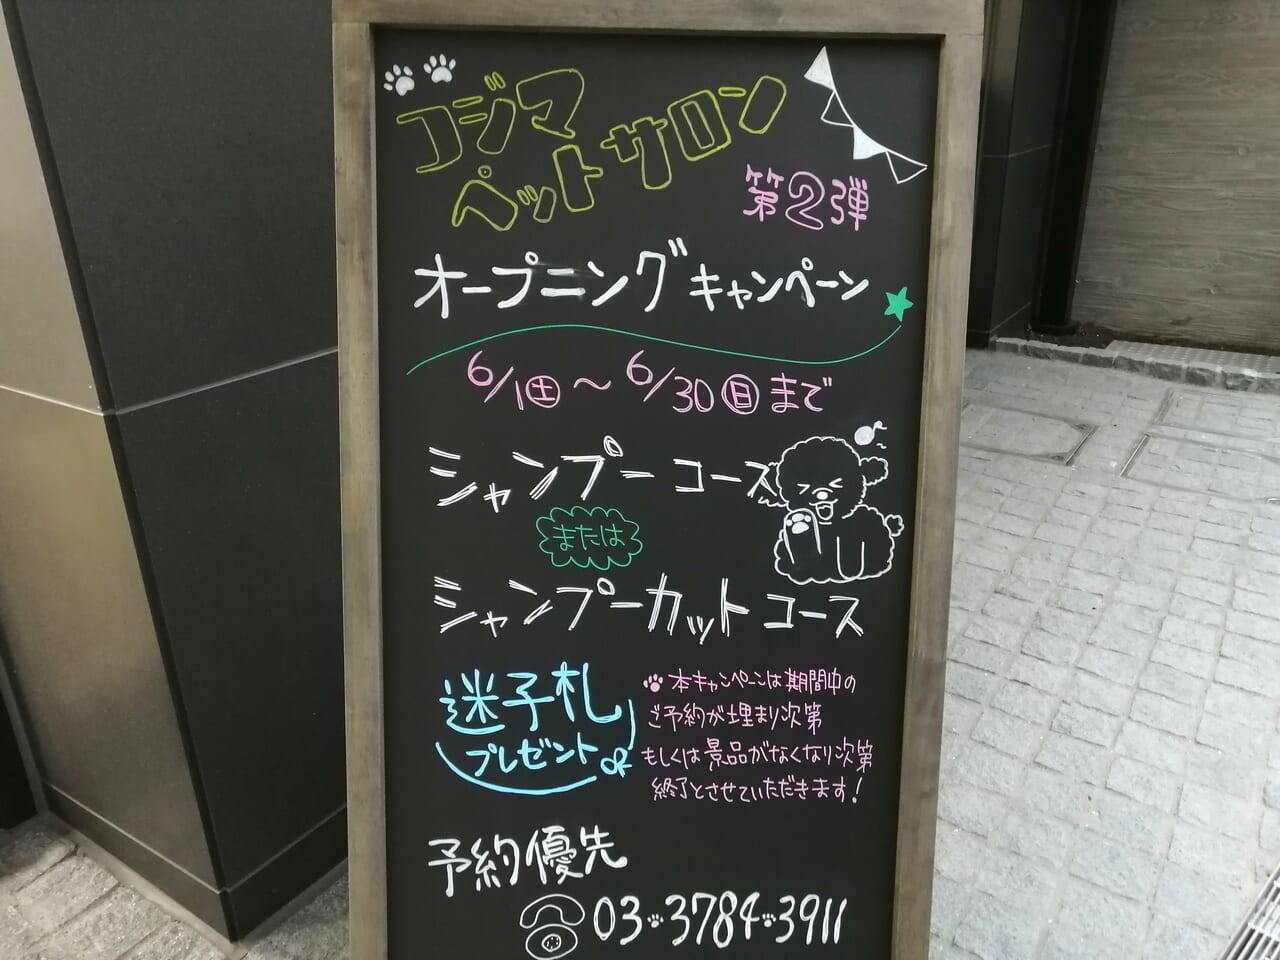 コジマ
ペットサロン
第2弾
オープニングキャンペーン
6/1㊏～6/30㊐まで
シャンプーコース
または
シャンプーカットコース
迷子札
プレゼント
本キャンペーンは期間中の
ご予約が埋まり次第
もしくは景品がなくなり次第
終了とさせていただきます！
予約優先
03-3784-3911